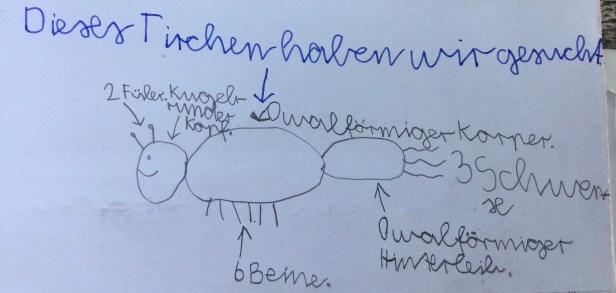 Dieses Tirchen haben wir gesucht
2 Füler.
Kugelr
runder
Kopf.
Owalförmiger Korper.
3 Schwen
ze
Owalförmiger
Hinterleib.
6 Beine.